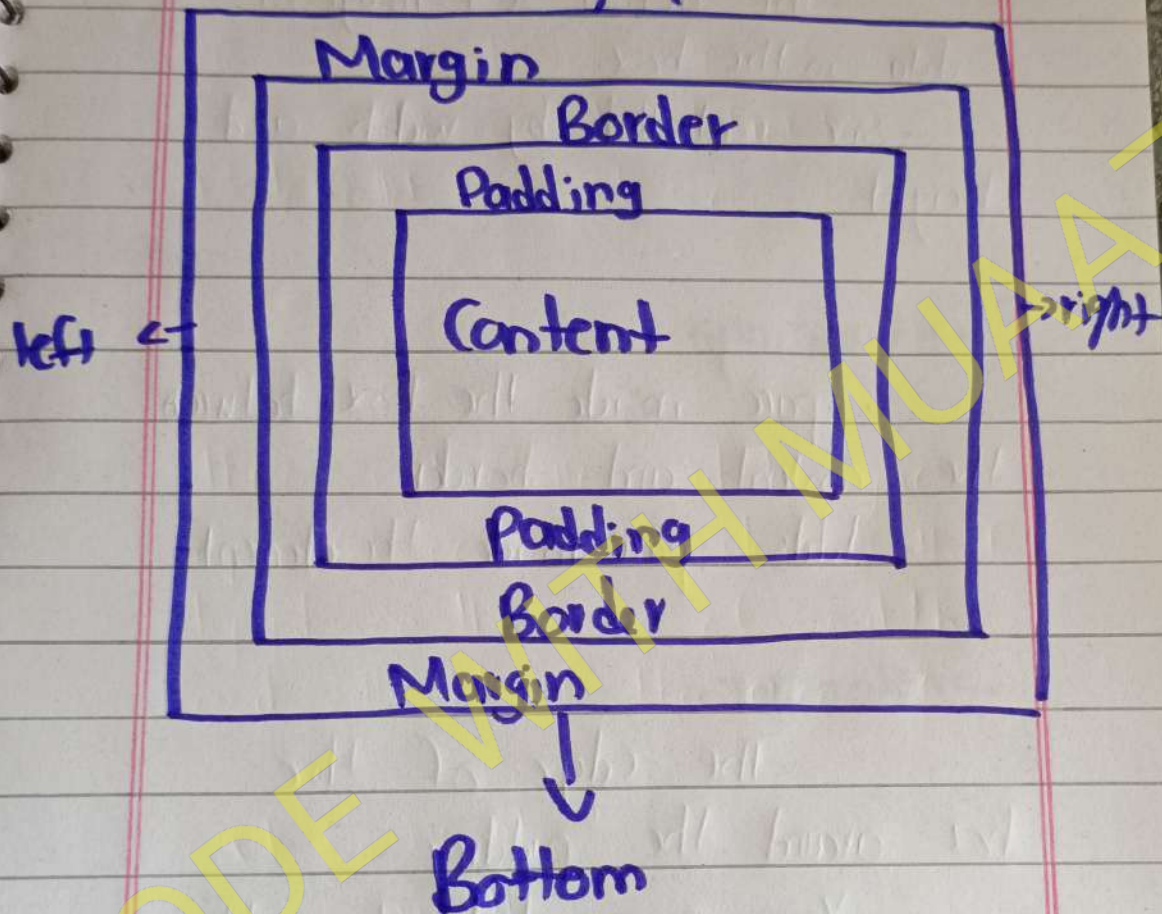 Margin
Border
Padding
Content
left
right
Padding
Border
Margin
Bottom
CODE WITH MUAA